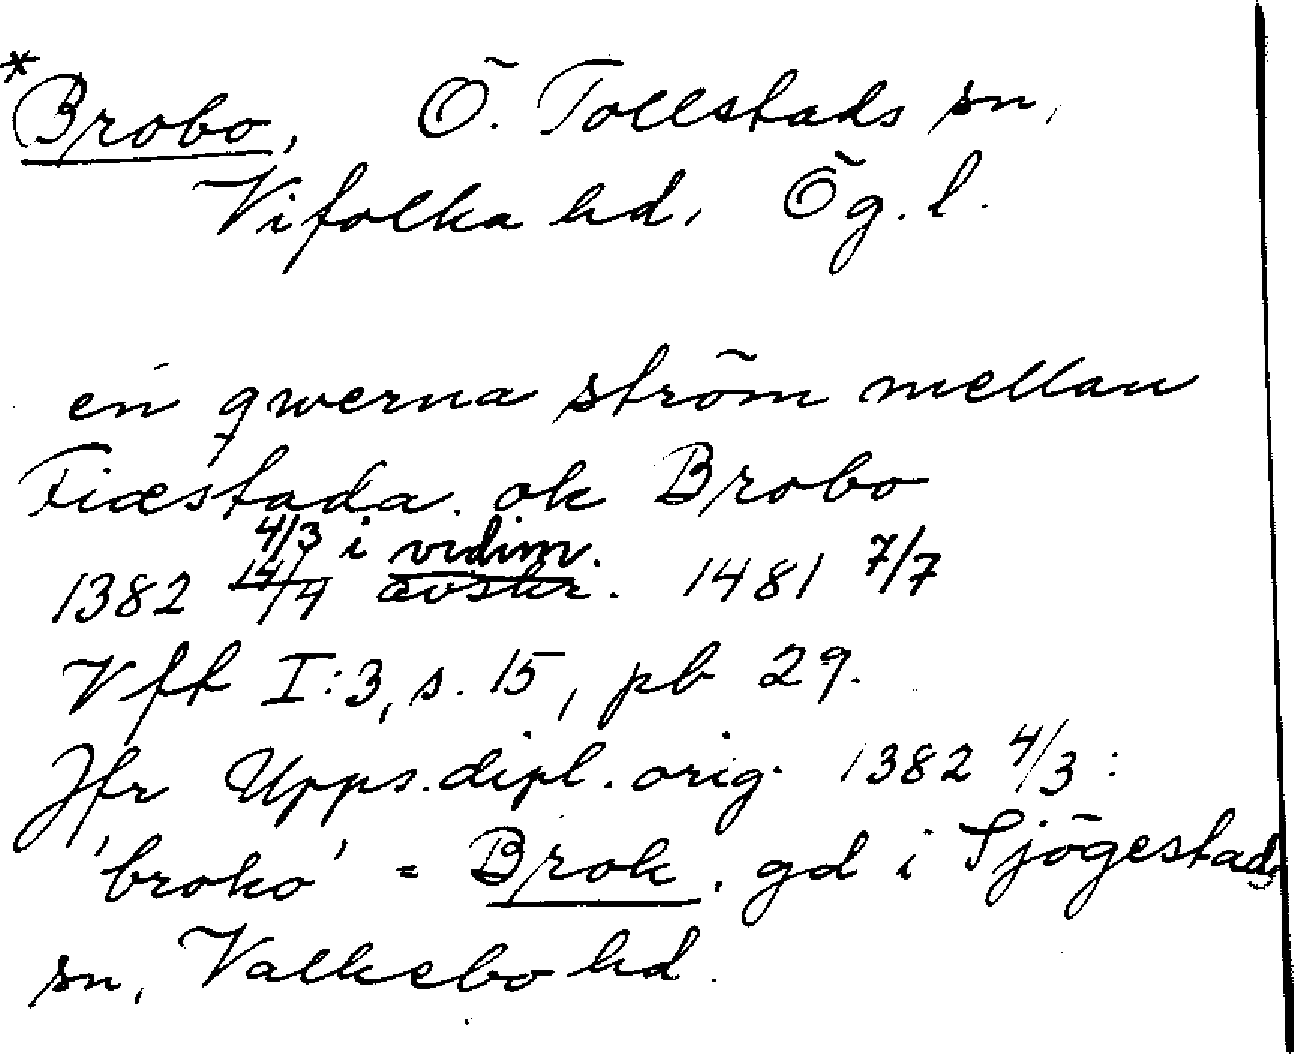 *Brobo, Ö. Tollstads sn,
Vifolka hd, Ög. l.
en qwerna ström mellan
Fiæstada ok Brobo
4/3 i vidim.
1382 14/9 avskr. 1481 7/7
Vft I:3, s. 15, pb 29.
Jfr Upps. dipl. orig. 1382 4/3:
'broko' = Brok, gd i Sjögestads
sn, Valkebo hd.